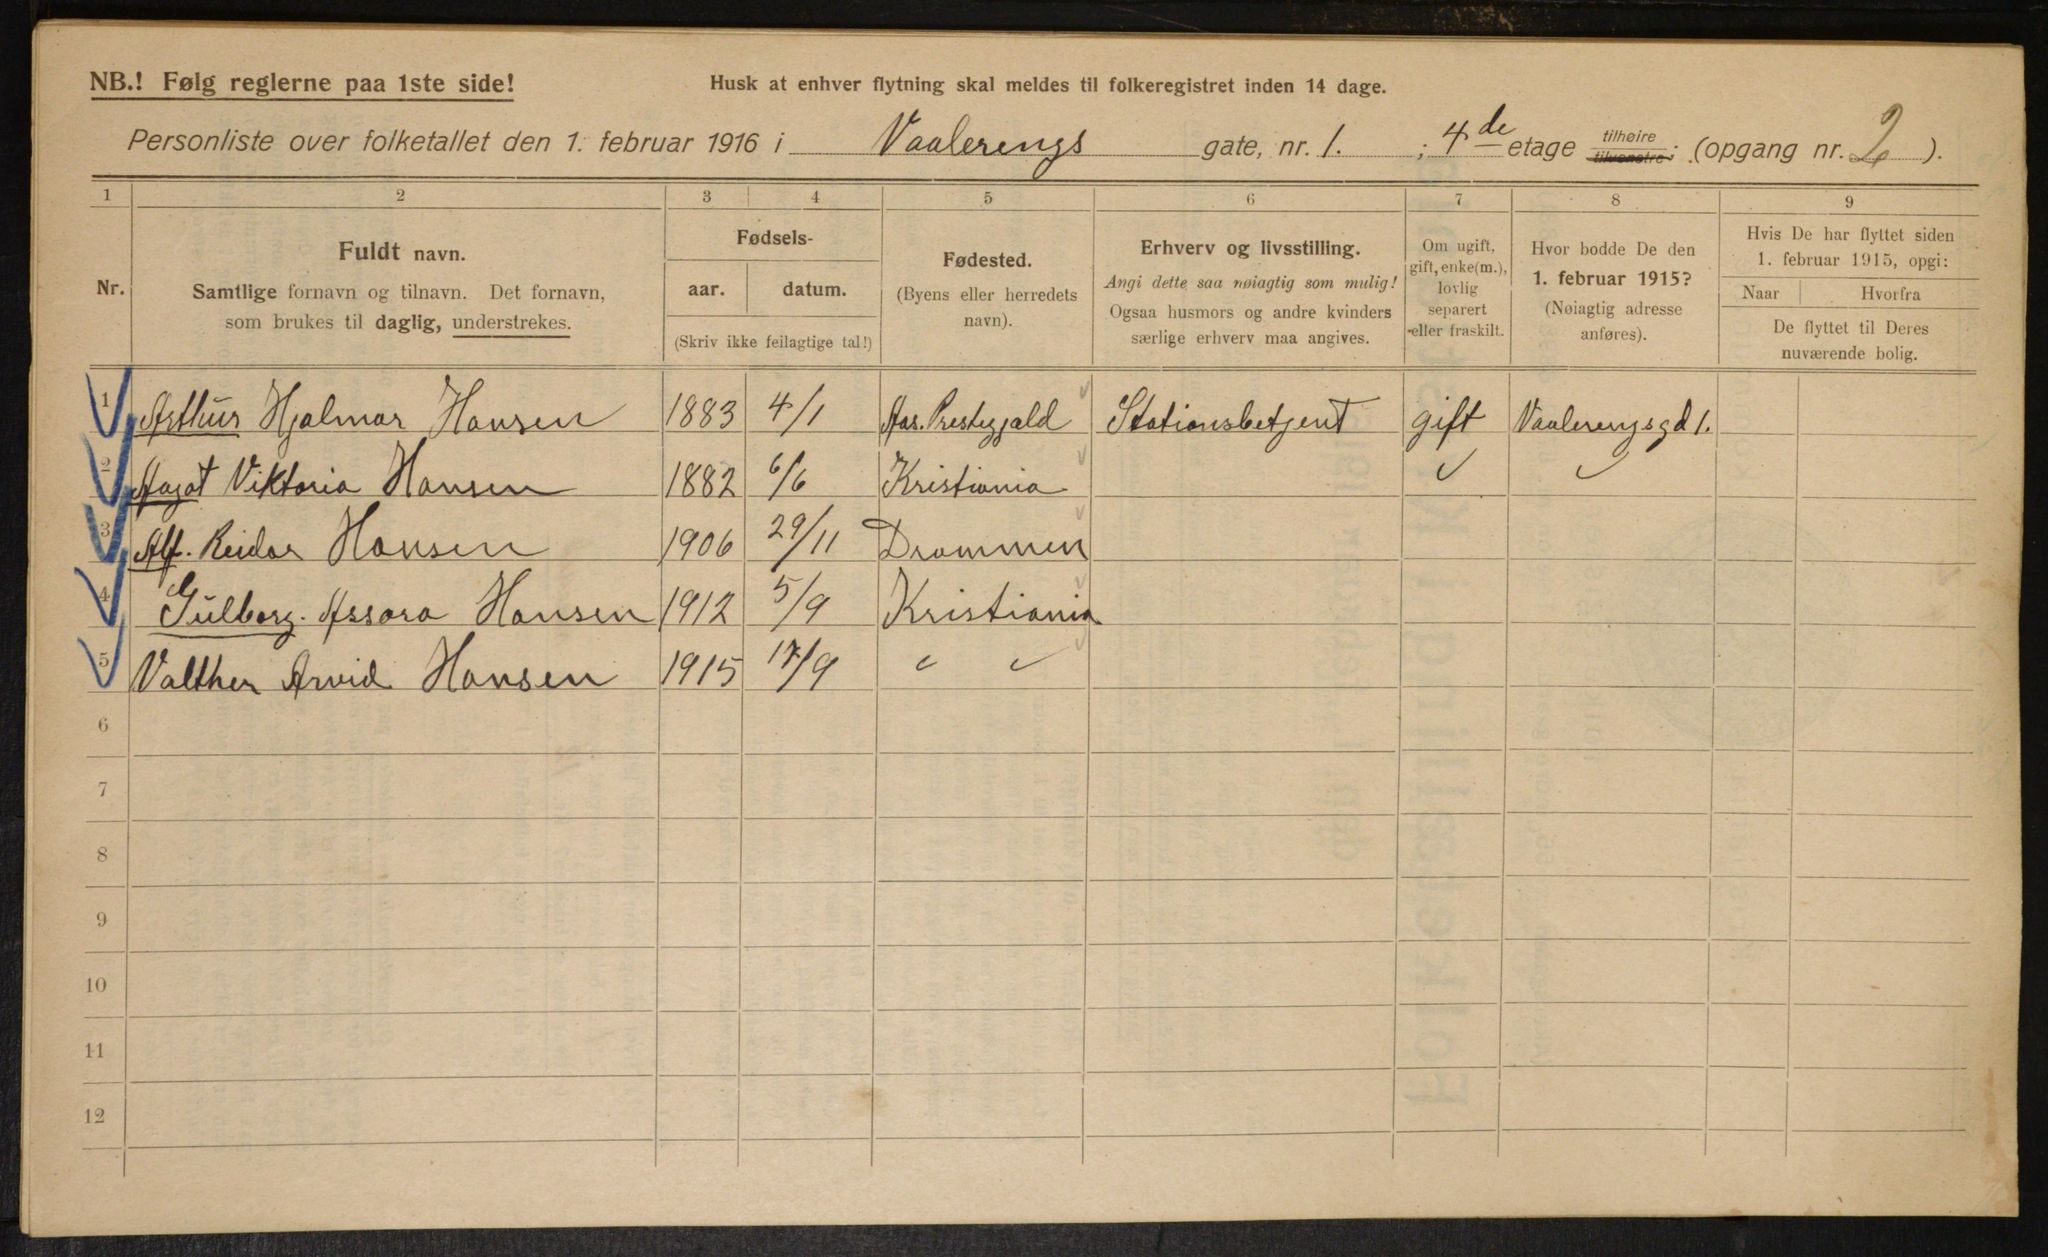 NB.! Følg reglerne paa 1ste side!
Husk at enhver flytning skal meldes til folkeregistret inden 14 dage.
Personliste over folketallet den 1. februar 1916 i Vaalerengs gate, nr. 1. ; 4de etage tilhøire tilvenstre; (opgang nr. 2 ).
1 2 3 4 5 6 7 8 9
Nr.
Fuldt navn.
Samtlige fornavn og tilnavn. Det fornavn,
som brukes til daglig, understrekes.
Fødsels-
aar. datum.
(Skriv ikke feilagtige tal!)
Fødested.
(Byens eller herredets
navn).
Erhverv og livsstilling.
Angi dette saa nøiagtig som mulig!
Ogsaa husmors og andre kvinders
særlige erhverv maa angives.
Om ugift,
gift, enke(m.),
lovlig
separert
eller fraskilt.
Hvor bodde De den
1. februar 1915?
(Nøiagtig adresse
anføres).
Hvis De har flyttet siden
1. februar 1915, opgi:
Naar Hvorfra
De flyttet til Deres
nuværende bolig.
1 Arthur Hjalmar Hansen 1883 4/1 Aas. Prestegjald Stationsbetjent gift Vaalerengsgd 1.
2 Aagot Viktoria Hansen 1882 6/6 Kristiania ✓ ✓
3 Alf. Reidar Hansen 1906 29/11 Drammen
4 Gulborg. Assora Hansen 1912 5/9 Kristiania
5 Valther Arvid Hansen 1915 17/9 " "
6
7
8
9
10
11
12